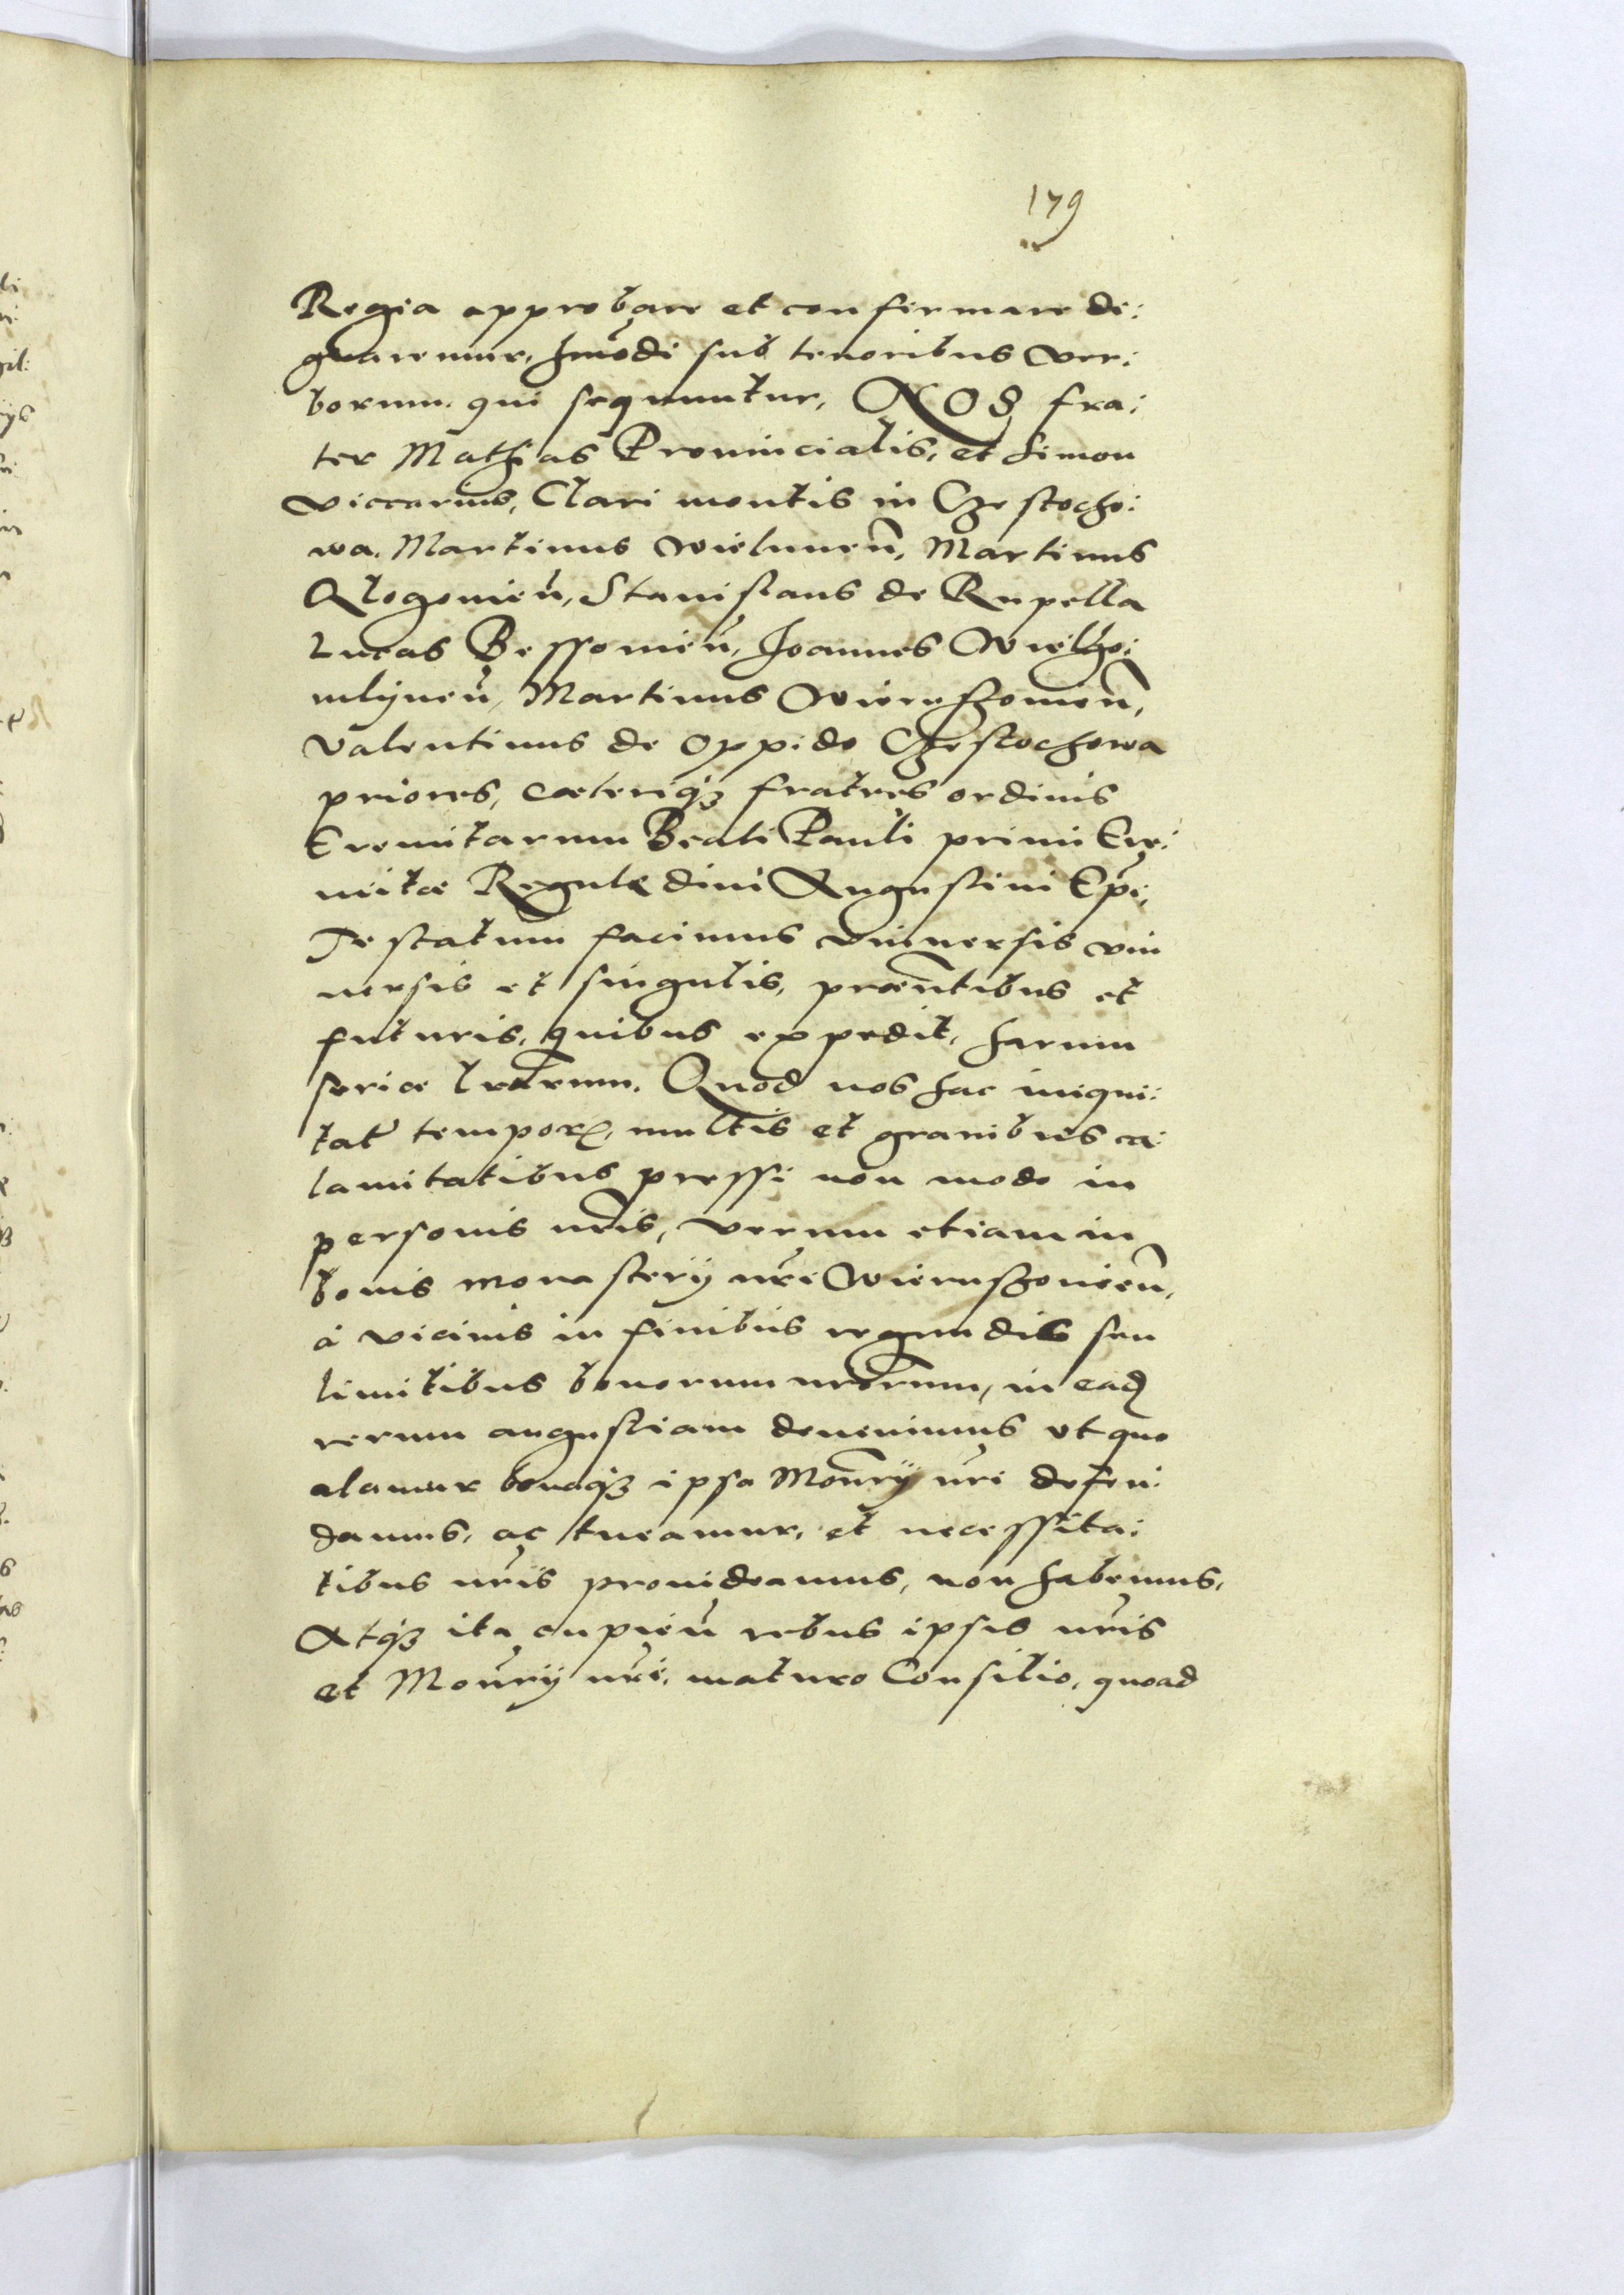 179
Regia approbare et confirmare di:
gnaremur, hmōdi sub tenoribus ver:
borum qui sequuntur, NOS fra:
ter Mathias Prouincialis, et Simon
viccarius, Clari montis in Czestocho:
wa. Martinus Wielunen̄, Martinus
Glogouien̄, Stanislaus de Rupella
Lucas Bessouien̄, Joannes Wielgo:
mlÿnen̄, Martinus Wieruszouien̄,
Valentinus de oppido Czestochowa
priores, cæteriqꝫ fratres ordinis
Eremitarum Beati Pauli primi Ere:
mitæ Regulę diui Augustini Ep̄i,
Testatum facimus vniuersis vni
uersis et singulis, præn̄tibus et
futuris, quibus expedit, harum
seriæ lr̄arum. Quod nos hac iniqui:
tate temporꝝ, multis et grauibus ca:
lamitatibus pressi non modo in
personis nr̄is, verum etiam in
bonis monasterÿ nr̄i Wieruszouien̄,
à vicinis in finibus regundis seu
limitibus bonorum nr̄orum, in eaꝫ
rerum angustiam deuenimus vt quo
alamur bonaqꝫ ipsa Mon̄rÿ nr̄i defen:
damus, ac tueamur, et necessita:
tibus nr̄is prouideamus, non habemus,
Atqꝫ ita cupien̄ rebus ipsis nr̄is
et Mon̄rÿ nr̄i, maturo Consilio, quoad